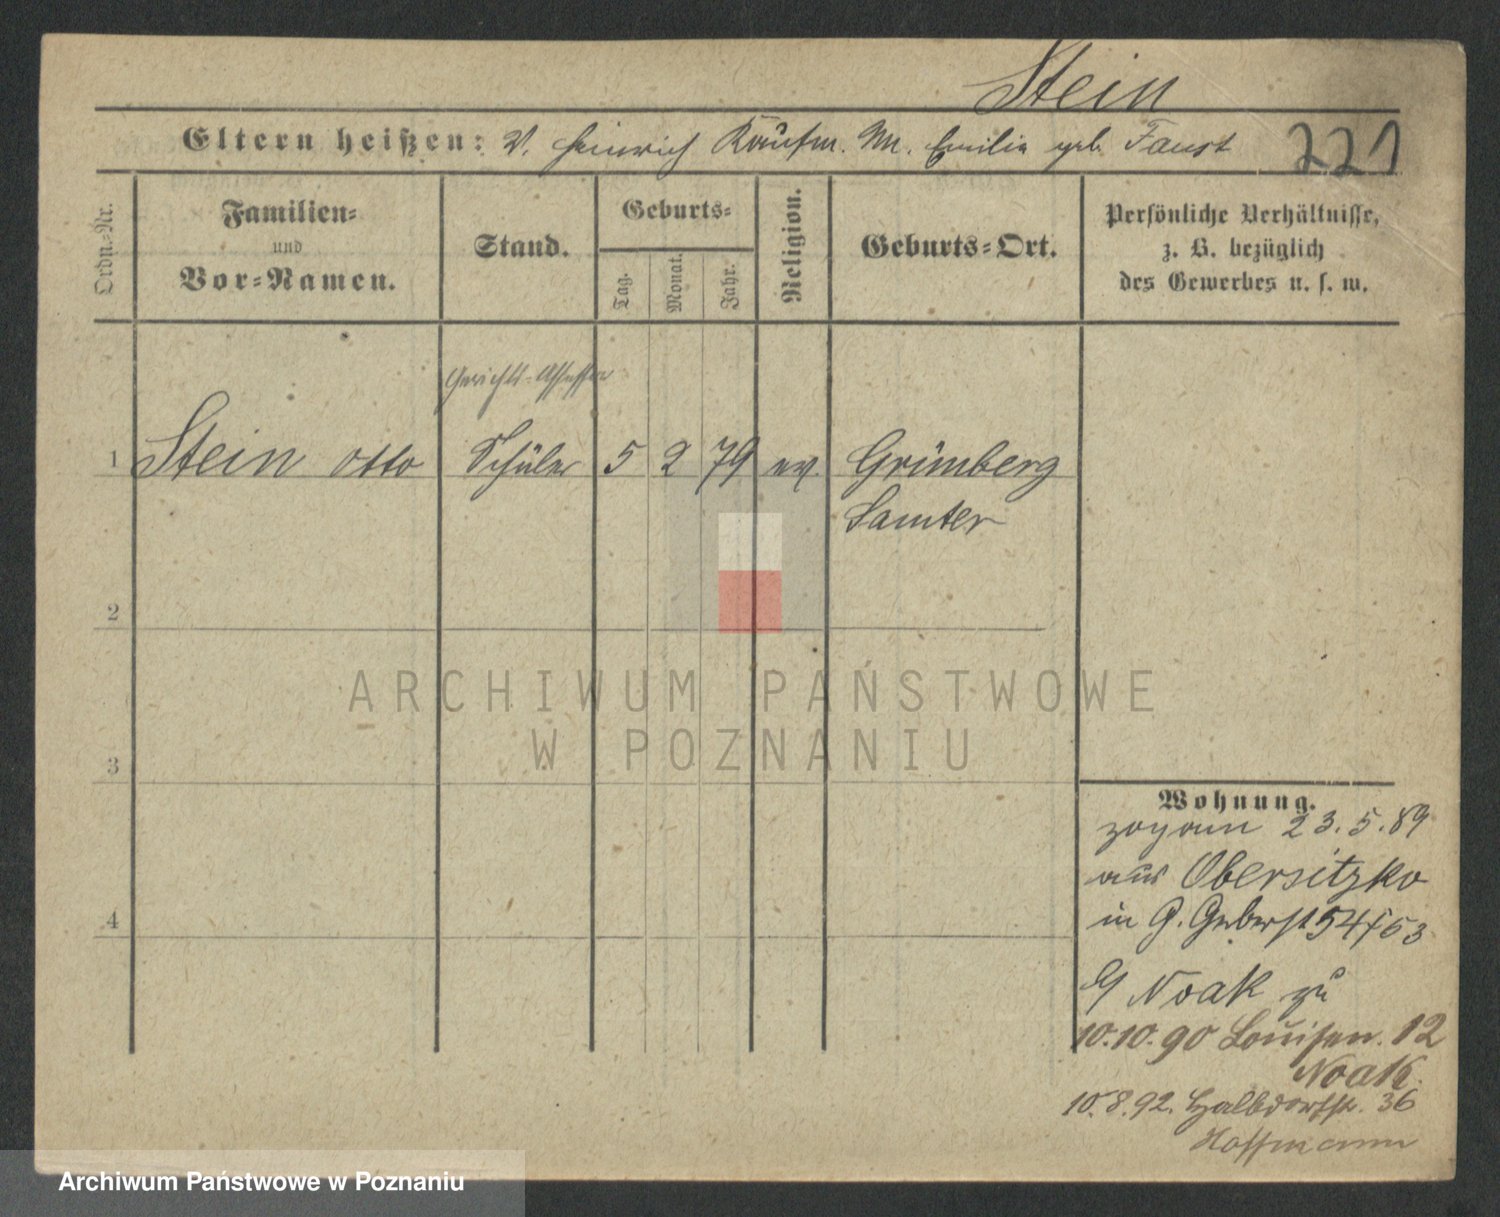 Stein
Eltern heißen: V. Heinrich Kaufm. M. Emilie geb. Faust 221
Ordn.-Nr.
Familien-
und
Vor-Namen.
Stand.
Geburts-
Tag.
Monat.
Jahr.
Religion.
Geburts-Ort.
Persönliche Verhältnisse,
z. B. bezüglich
des Gewerbes u. s. w.
Gerichts-Assessor
1 Stein Otto Schüler 5 2 79 ev. Grünberg
Samter
2
ARCHIWUM PAŃSTWOWE
W POZNANIU
3
4
Wohnung.
zog am 23.5.89
aus Obersitzko
in G. Gerberst 54/53
b/ Noak zu
10.10.90 Louisen. 12
Noak.
10.8.92. Halbdorfstr. 36
Hoffmann
Archiwum Państwowe w Poznaniu